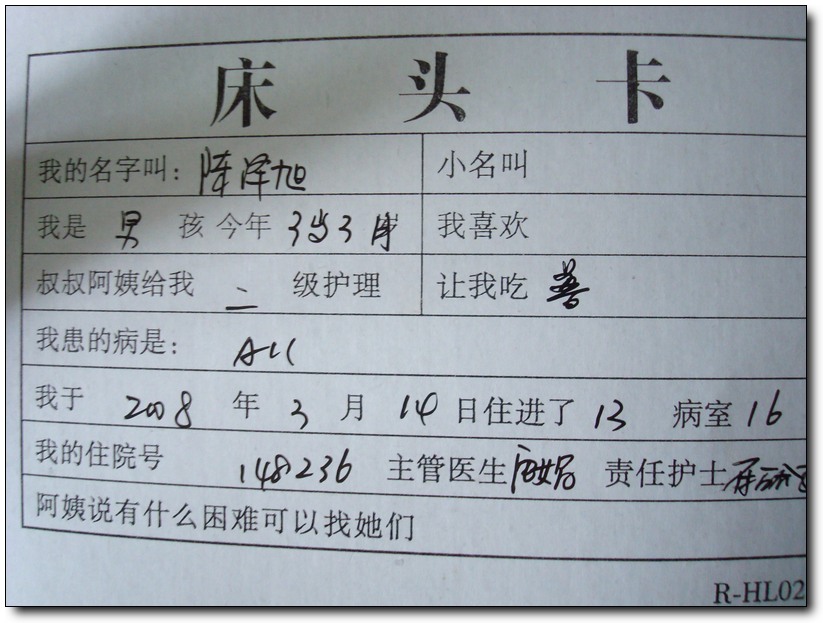 床头卡
我的名字叫: 陈泽旭 小名叫
我是 男 孩 今年 3岁3月 我喜欢
叔叔阿姨给我 二 级护理 让我吃 普
我患的病是: ALL
我于 2008 年 3 月 14 日住进了 13 病室 16
我的住院号 148236 主管医生 责任护士
阿姨说有什么困难可以找她们
R-HL02